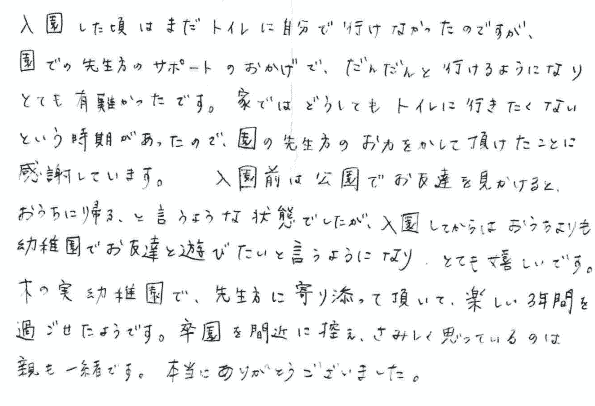 入園した頃はまだトイレに自分で行けなかったのですが、
園での先生方のサポートのおかげで、だんだんと行けるようになり
とても有難かったです。家ではどうしてもトイレに行きたくない
という時期があったので、園の先生方のお力をかして頂けたことに
感謝しています。　入園前は公園でお友達を見かけると、
おうちに帰る、と言うような状態でしたが、入園してからはおうちよりも
幼稚園でお友達と遊びたいと言うようになり、とても嬉しいです。
木の実幼稚園で、先生方に寄り添って頂いて、楽しい3年間を
過ごせたようです。卒園を間近に控え、さみしく思っているのは
親も一緒です。本当にありがとうございました。